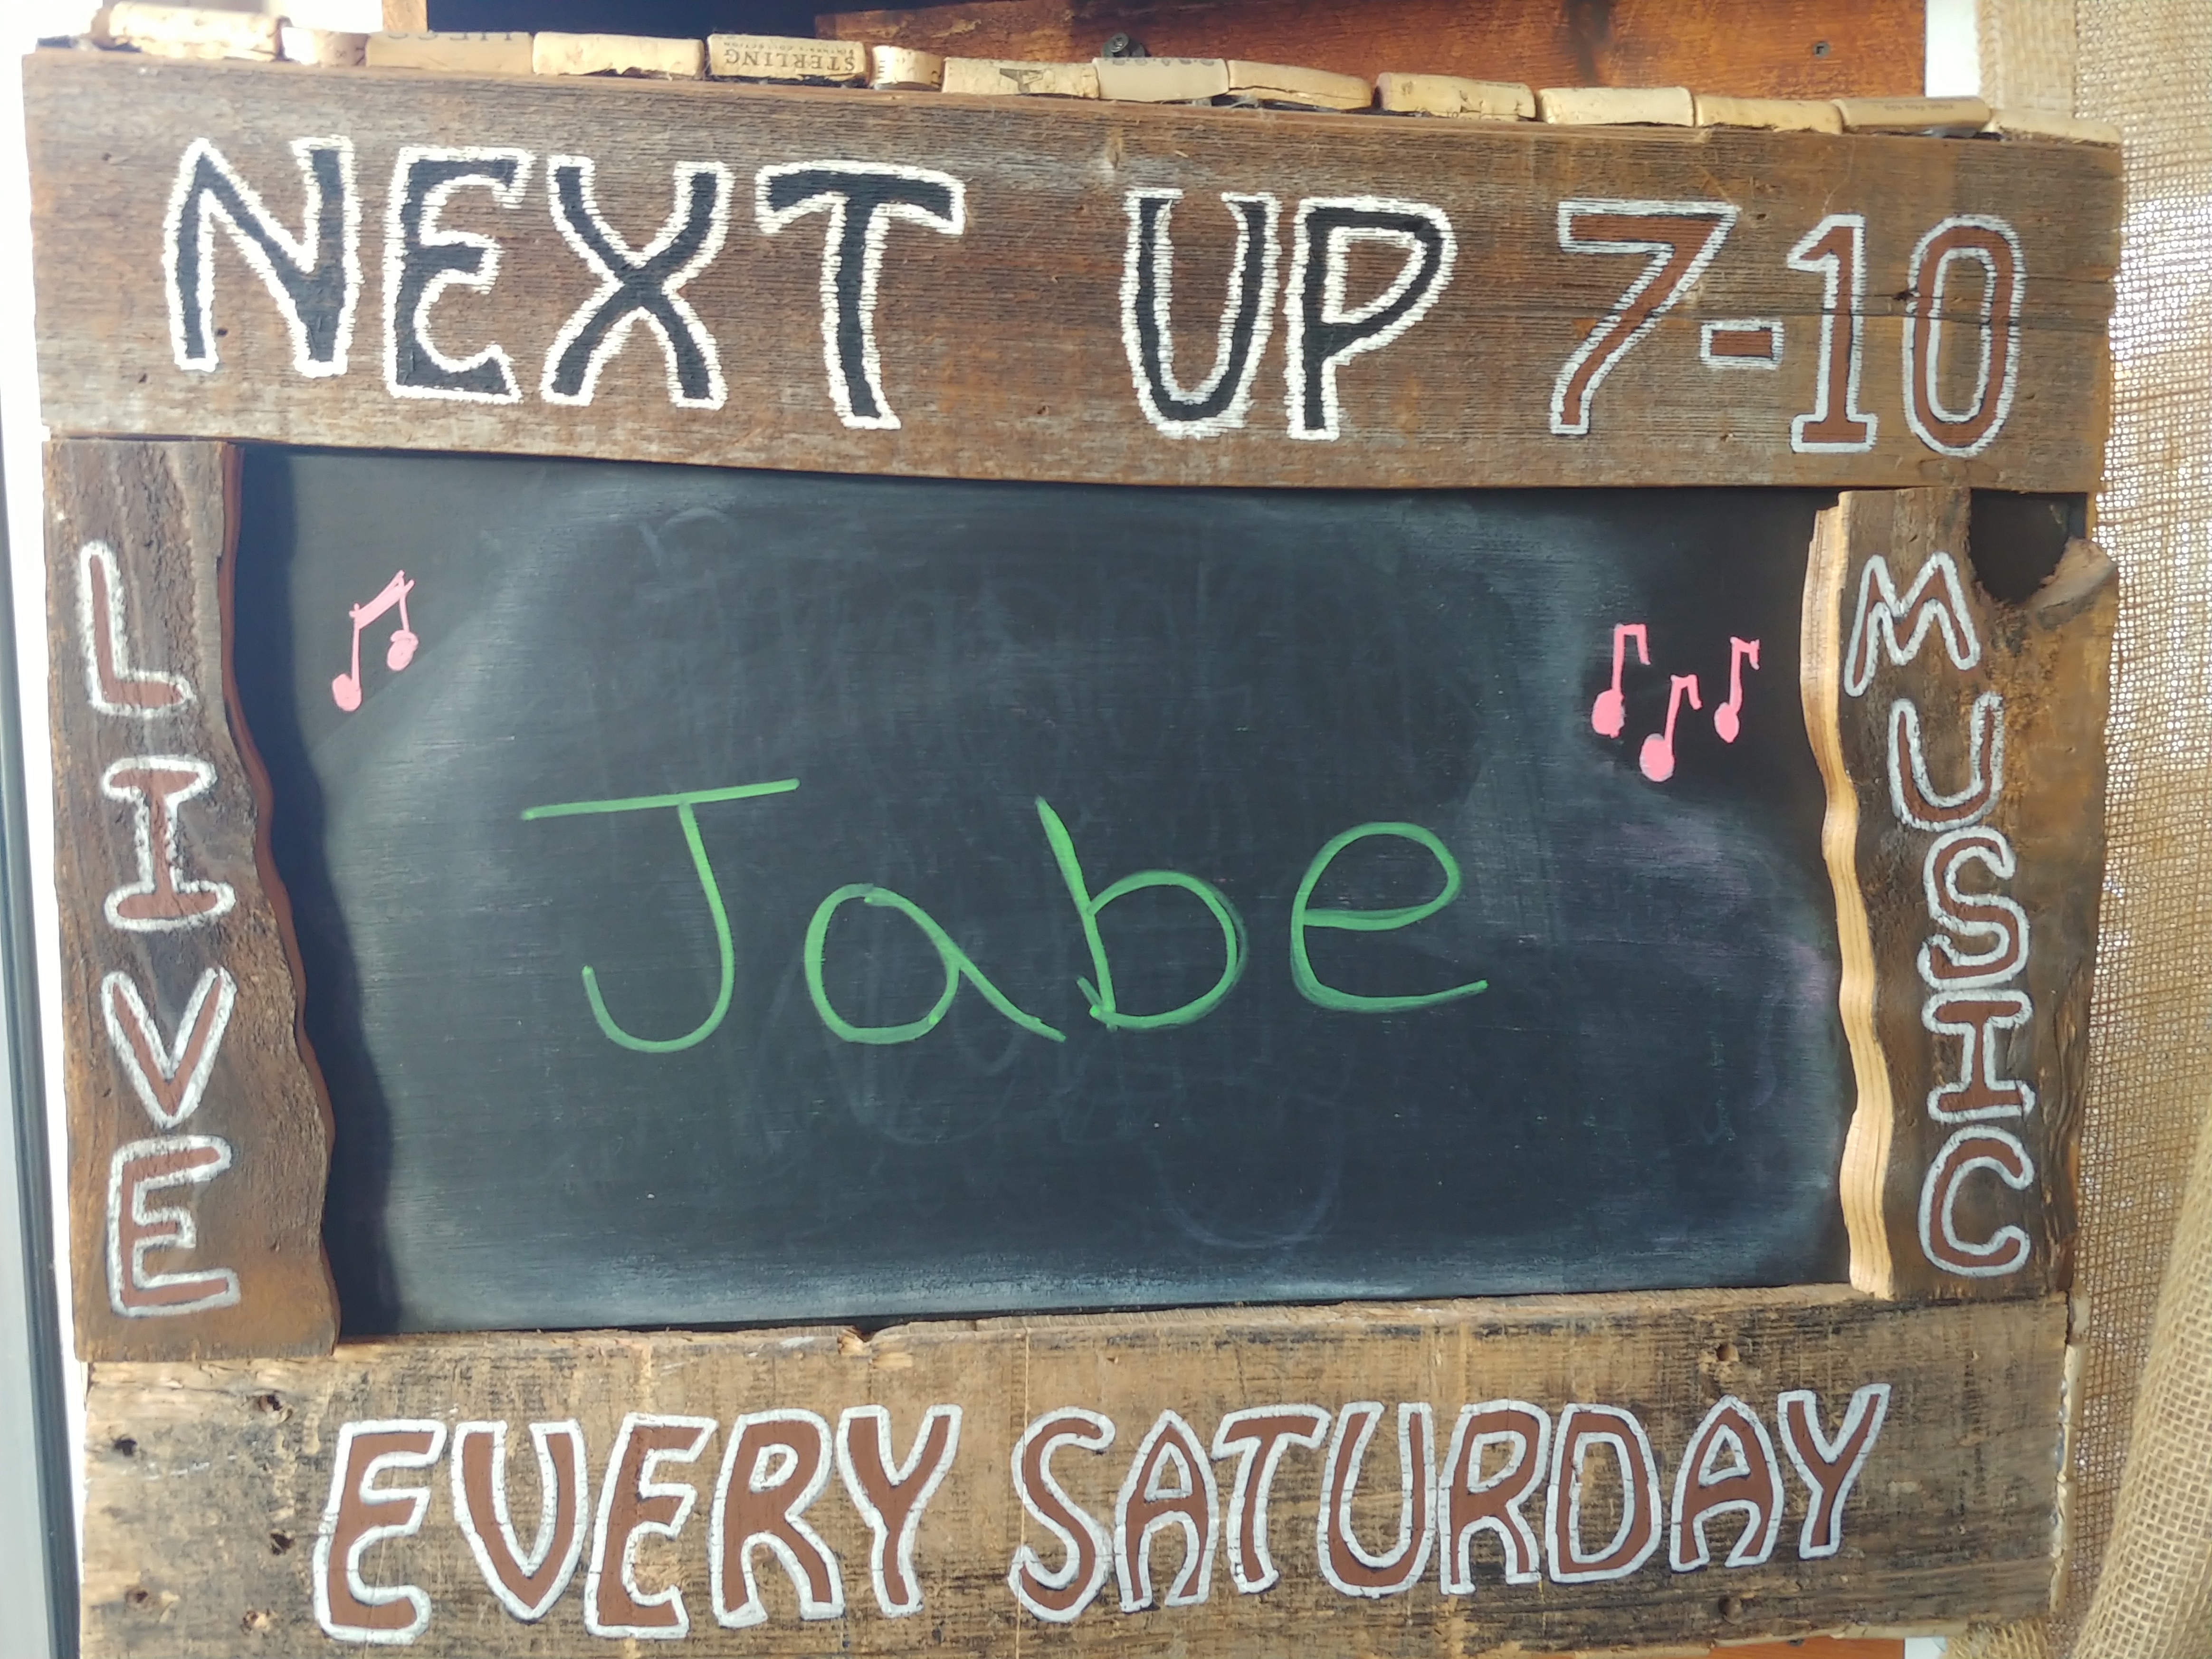 STERLING
NEXT UP 7-10
LIVE
Jabe
MUSIC
EVERY SATURDAY